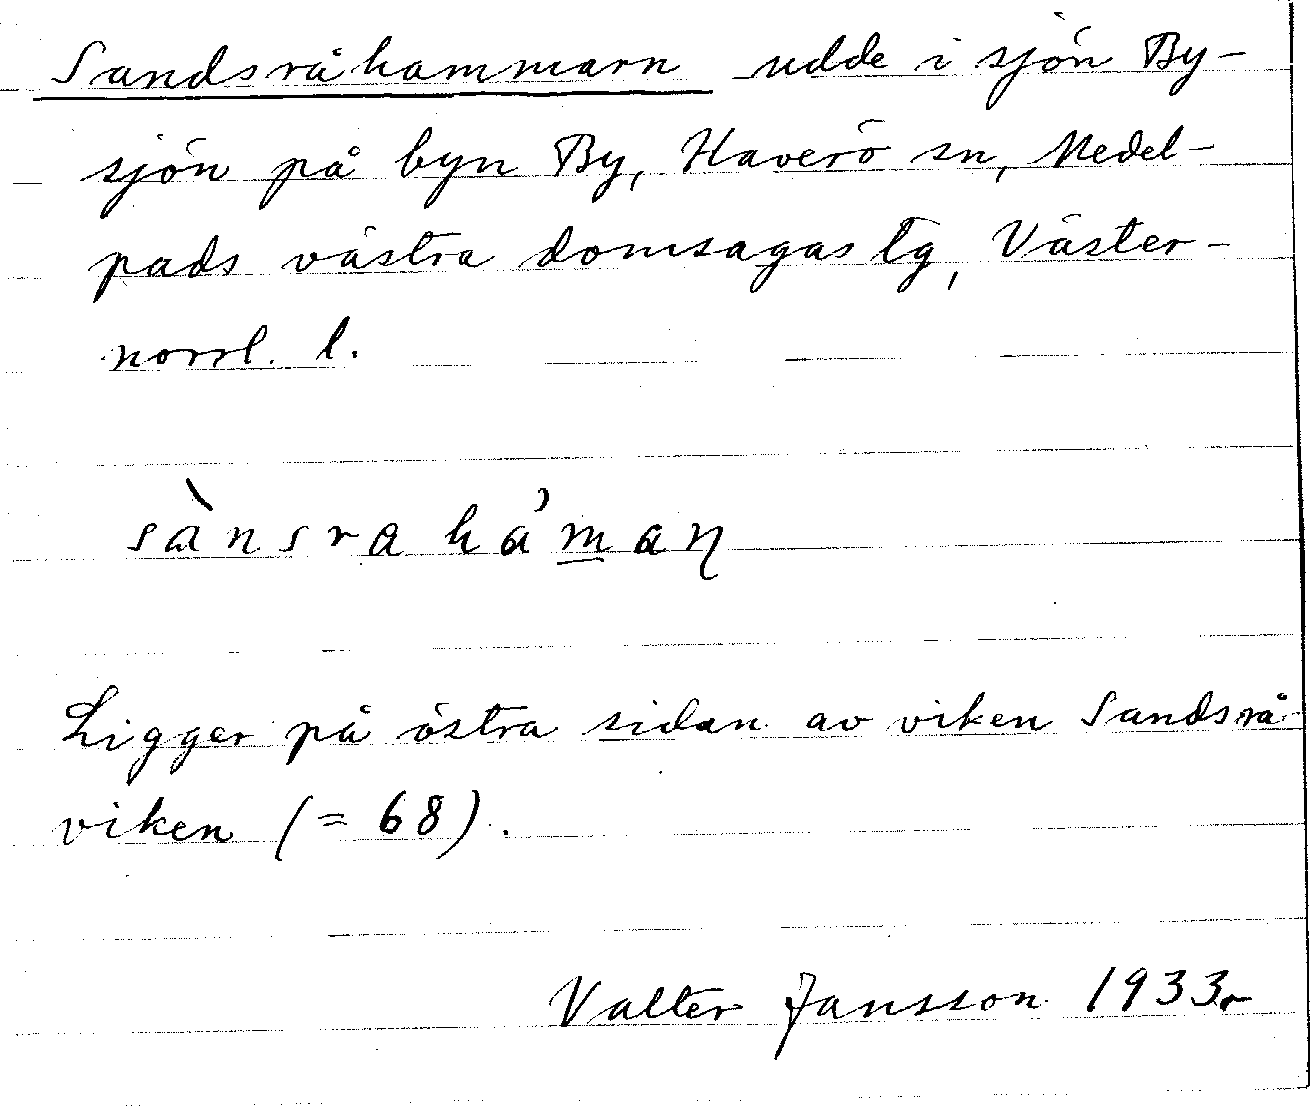 Sandsråhammarn udde i sjön By-
sjön på byn By, Haverö sn, Medel-
pads västra domsagas tg, Väster-
norrl. l.
sànsra há̓m̲aɳ
Ligger på östra sidan av viken Sandsrå-
viken (= 68).
Valter Jansson 1933.